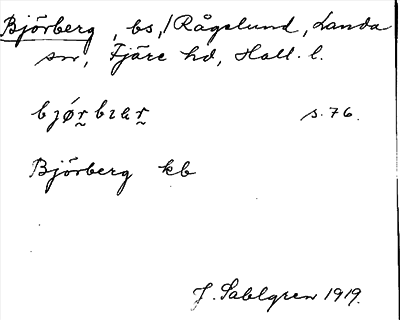 Björberg, bs,/Rågelund, Landa
sn, Fjäre hd, Hall. l.
bjǿr̰bær̰ s. 76.
Björberg kb
J. Sahlgren 1919.